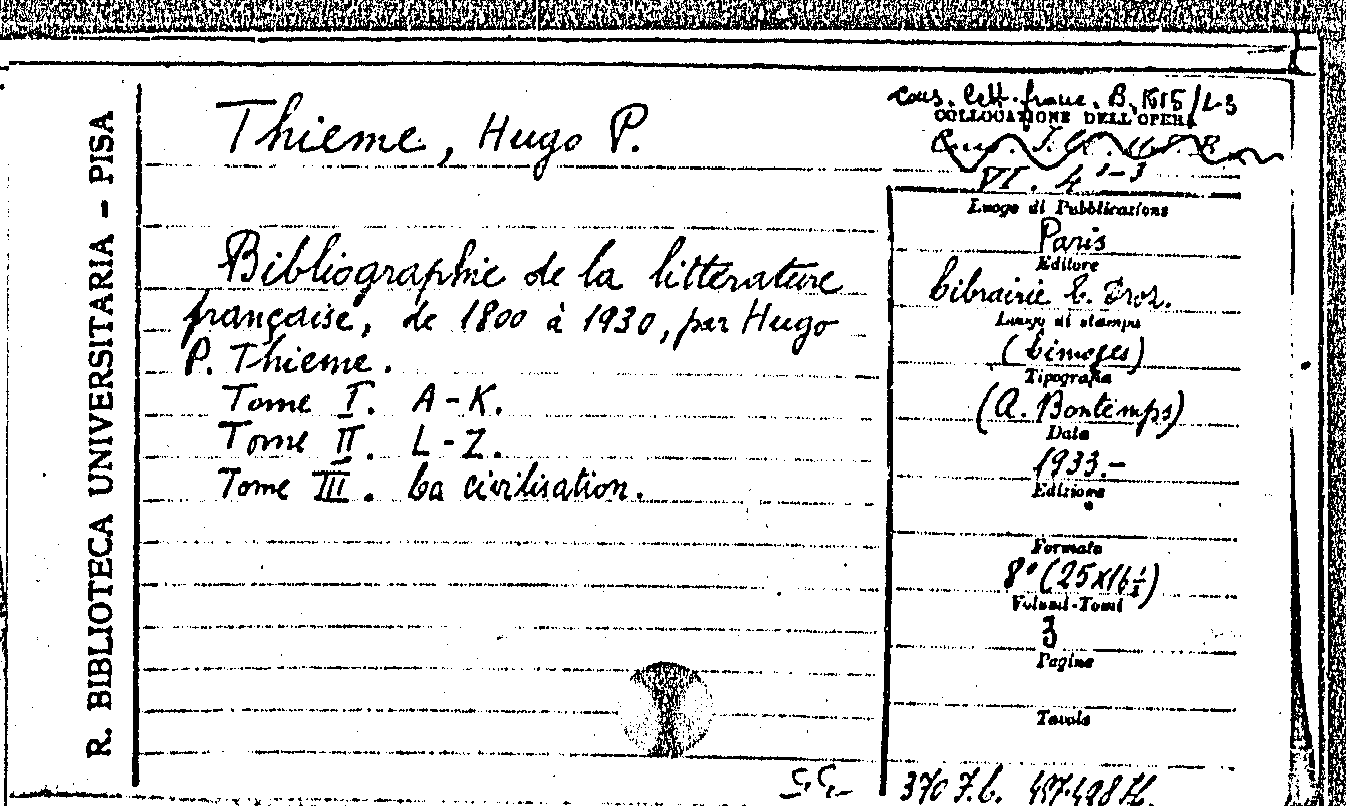 R. BIBLIOTECA UNIVERSITARIA - PISA
Thieme, Hugo P.
Bibliographie de la littérature
française, de 1800 à 1930, par Hugo
P. Thieme.
Tome I. A-K.
Tome II. L-Z.
Tome III. La civilisation.
Cons. Lett. franc. B. 1515/1-3
COLLOCATIONE DELL'OPERA
VI. 4 1-3
Luogo di Pubblicazione
Paris
Editore
Librairie E. Droz.
Luogo di stampa
(Limoges)
Tipografia
(A. Bontemps)
Data
1933.-
Edizione
Formato
8° (25x16½)
Volumi-Tomi
3
Pagine
Tavole